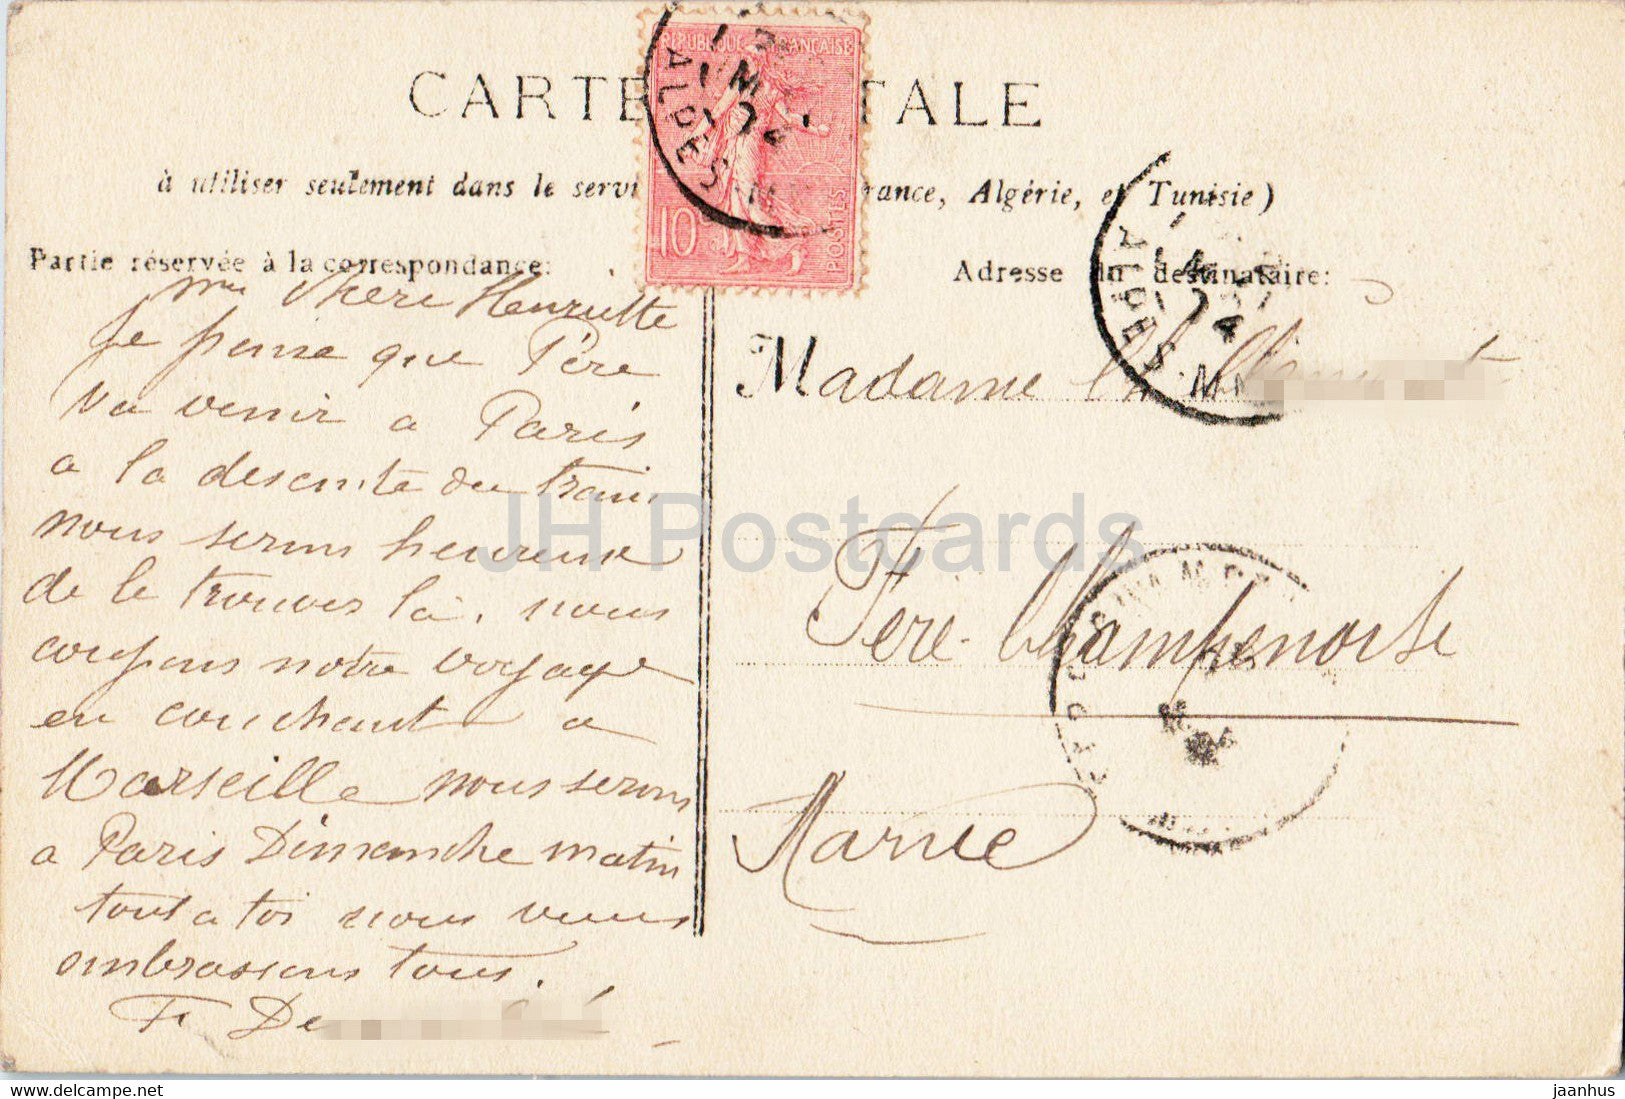 CARTE TALE
à utiliser seulement dans le servi rance, Algérie, et Tunisie)
REPUBLIQUE FRANÇAISE
10c
POSTES
Partie réservée à la correspondance:
Ma chère Henriette
je pense que Père
va venir a Paris
a la descente du train
nous serons heureux
de le trouver là, nous
coupons notre voyage
en couchant a
Marseille nous serons
a Paris Dimanche matin
tout a toi nous vous
embrassons tous.
F. De
Adresse du destinataire:
Madame
Fère-Champenoise
Marne
ALPES M
ALPES M
JH Postcards
www.delcampe.net
jaanhus